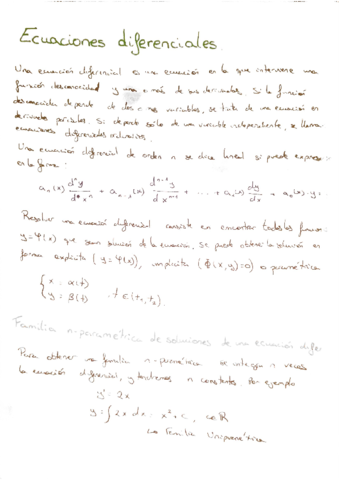 Ecuaciones diferenciales
Una ecuación diferencial es una ecuación en la que interviene una
función desconocida y una o más de sus derivadas. Si la función
desconocida depende de dos o más variables, se trata de una ecuación en
derivadas parciales. Si depende sólo de una variable independiente, se llama
ecuaciones diferenciales ordinarias.
Una ecuación diferencial de orden n se dice lineal si puede expresa
en la forma:
aₙ(x) dⁿy/dxⁿ + aₙ₋₁(x) dⁿ⁻¹y/dxⁿ⁻¹ + ... + a₁(x) dy/dx + a₀(x)·y =
Resolver una ecuación diferencial consiste en encontrar todas las funcio
y=φ(x) que sean solución de la ecuación. Se puede obtener la solución en
forma explícita (y=φ(x)), implícita (Φ(x,y)=0) o paramétrica
{ x = α(t)
y = β(t) t ∈ (t₁, t₂).
Familia n-paramétrica de soluciones de una ecuación dife
Para obtener una familia n-paramétrica se integra n veces
la ecuación diferencial, y tendremos n constantes. Por ejemplo
y' = 2x
y = ∫ 2x dx = x² + c, c∈ℝ
Familia Uniparamétrica